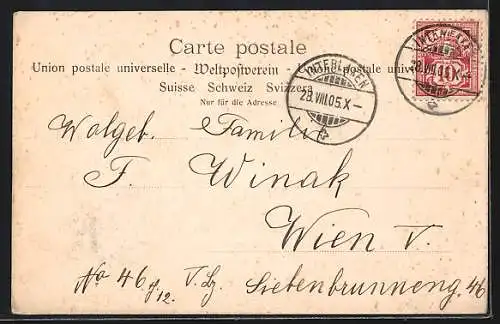 Carte postale
Union postale universelle - Weltpostverein - Unione postale universale
Suisse Schweiz Svizzera
Nur für die Adresse
INTERLAKEN
28.VIII.05.X–
10
28.VIII
X–
Wolgeb. Familie
F. Winak
Wien V.
No 46
/12.
Siebenbrunneng. 46